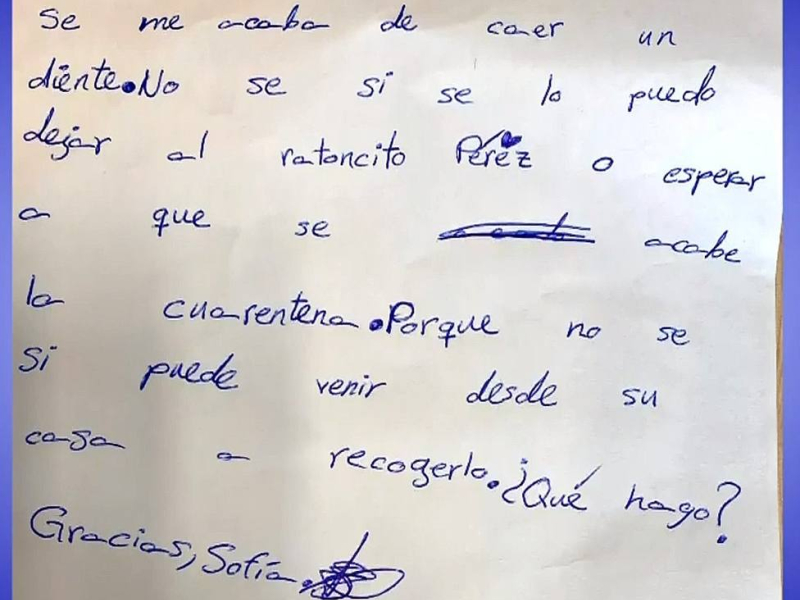 Se me acaba de caer un
diente. No se si se lo puedo
dejar al ratoncito Pérez o esperar
a que se acabe
la cuarentena. Porque no se
si puede venir desde su
casa a recogerlo. ¿Qué hago?
Gracias, Sofía.